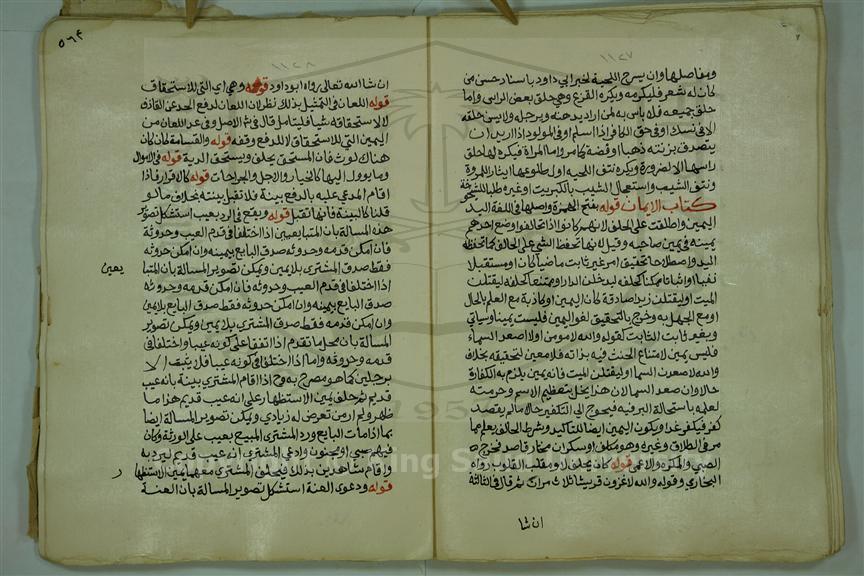 ١١٢٧
ومفاصلها وان يسرح اللحية لخبر ابي داود باسناد حسن من
كان له شعر فليكرمه ويكره القزع وهي حلق بعض الراس واما
حلق جميعه فلا باس به لمن اراد
الا في نسك او في حق الكافر اذا اسلم او في المولود اذا اريد ان
يتصدق بزنته ذهبا او فضة كما مر واما المراة فيكره لها حلق
راسها الا لضرورة ويكره نتف اللحية اول طلوعها ايثارا للمرودة
ونتف الشيب واستعمال الشيب بالكبريت او غيره طلبا للشيخوخة
كتاب الايمان قوله بفتح الهمزة واصلها في اللغة اليد
اليمين واطلقت على الحلف لانهم كانوا اذا تحالفوا وضع احدهم
يمينه في يمين صاحبه وقيل لانها تحفظ الشي على الحالف كما تحفظه
اليد واصطلاحا تحقيق امر غير ثابت ماضيا كان او مستقبلا
نفيا او اثباتا ممكنا كحلفه ليدخلن الدار او ممتنعا كحلفه ليقتلن
الميت او ليقتلن زيدا صادقة كان اليمين او كاذبة مع العلم بالحال
او مع الجهل به وخرج بالتحقيق لغو اليمين فليست يمينا وسياتي
وبغير ثابت الثابت كقوله والله لاموتن او لا اصعد السماء
فليس يمين لامتناع الحنث فيه بذاته فلا معين لتحقيقه بخلاف
والله لاصعدن السما او ليقتلن الميت فانه يمين يلزم به الكفارة
حالا وان صعد السما لان هذا يخل بتعظيم الاسم وحرمته
لعلمه باستحالة البر فيه فيحوج الى التكفير حالا ما لم يقصد
كفر فيكفي غدا ويكون اليمين ايضا للتاكيد وشرط الحالف يعلم مما
مر في الطلاق وغيره وهو مكلف او سكران مختار قاصد فخرج
الصبي والمكره واللاغي قوله كان يحلف لا ومقلب القلوب رواه
البخاري وقوله والله لاغزون قريشا ثلاث مرات ثم قال في الثالثة
ان شا
٥٦٤
١١٢٨
ان شا الله تعالى رواه ابو داود قوله وهي اي التي للاستحقاق
قوله اللعان في التمثيل بذلك نظر لان اللعان لدفع الحد عن القاذف
لا لاستحقاقه شيا فليتامل قال في شر الاصل وفي عد اللعان من
اليمين التي للاستحقاق لا للدفع وقفه قوله والقسامة كان كان
هناك لوث فان المستحق يحلف ويستحق الدية قوله في الاموال
وما يوول اليها كالخيار والاجل والجراحات قوله كالاقرار فاذا
اقام المدعي عليه بالدفع بينة فلا تقبل بينته بخلاف ما لو
قلنا كالبينة فانها تقبل قوله ويقع في الرد بعيب استشكل تصوير
هذه المسالة بان المتبايعين اذا اختلفا في قدم العيب وحدوثه
فان امكن قدمه وحدوثه صدق البايع بيمينه وان امكن حدوثه
فقط صدق المشتري بلا يمين ويمكن تصوير المسالة بان المتبا
يعين
اذا اختلفا في قدم العيب وحدوثه فان امكن قدمه وحدوثه
صدق البايع بيمينه وان امكن حدوثه فقط صدق البايع بلا يمين
وان امكن قدمه فقط صدق المشتري بلا يمين ويمكن تصوير
المسالة بان محل ما تقدم اذا اتفقا على كونه عيبا واختلفا في
قدمه وحدوثه واما اذا اختلفا في كونه عيبا فلا يثبت الا
برجلين كما هو مصرح به وح اذا اقام المشتري بينة بانه عيب
قديم ثم حلف يمين الاستظهار على انه عيب قديم هذا ما
ظهر ولم ار من تعرض له زيادي ويمكن تصوير المسالة ايضا
بما اذا مات البايع ورد المشتري المبيع بعيب على الورثة وكان
فيهم صبي او مجنون وادعى المشتري انه عيب قديم ليرد به
واقام شاهدين بذلك فيحلف المشتري معهما يمين الاستظها
ر
قوله ودعوى العنة استشكل تصوير المسالة بان العنة